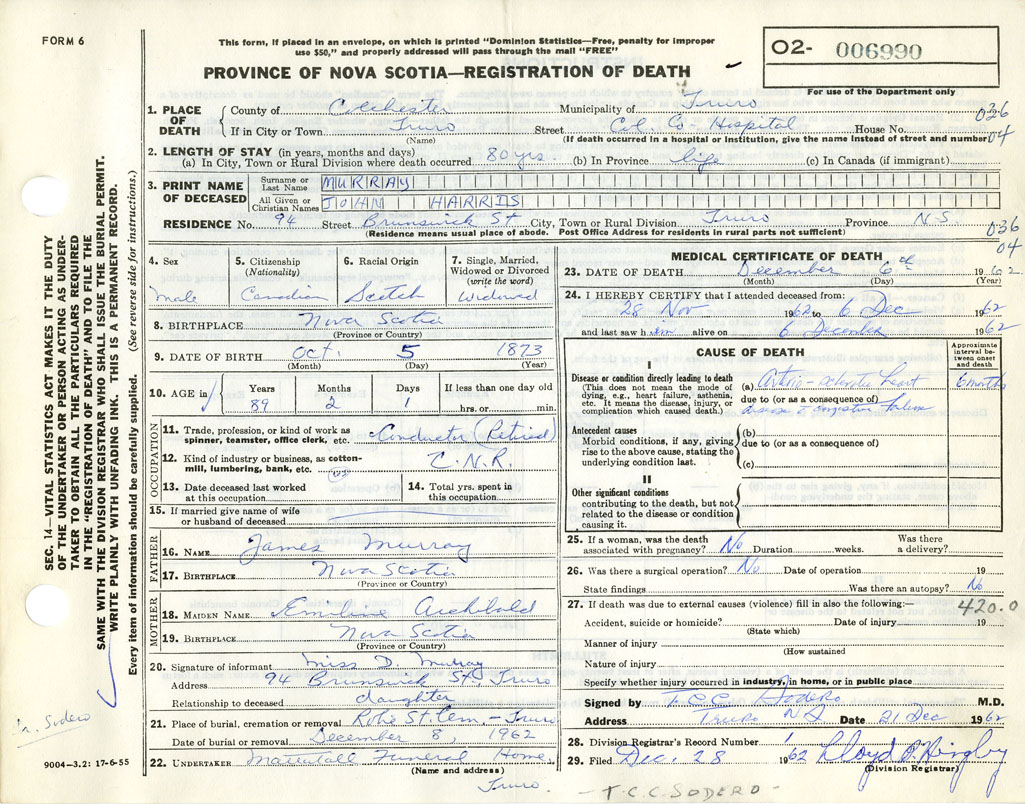 FORM 6
This form, if placed in an envelope, on which is printed "Dominion Statistics—Free, penalty for improper
use $50," and properly addressed will pass through the mail "FREE"
PROVINCE OF NOVA SCOTIA—REGISTRATION OF DEATH
O2- 006990
For use of the Department only
1. PLACE OF DEATH
County of Colchester Municipality of Truro 036
If in City or Town Truro Street Col. Co- Hospital House No. 04
(Name) (If death occurred in a hospital or Institution, give the name Instead of street and number)
2. LENGTH OF STAY (in years, months and days)
(a) In City, Town or Rural Division where death occurred 80 yrs. (b) In Province life (c) In Canada (if immigrant)
3. PRINT NAME OF DECEASED
Surname or Last Name MURRAY
All Given or Christian Names JOHN HARRIS
RESIDENCE No. 94 Street Brunswick St City, Town or Rural Division Truro Province N.S.
(Residence means usual place of abode. Post Office Address for residents in rural parts not sufficient)
036
04
4. Sex
Male
5. Citizenship
(Nationality)
Canadian
6. Racial Origin
Scotch
7. Single, Married,
Widowed or Divorced
(write the word)
Widowed
8. BIRTHPLACE Nova Scotia
(Province or Country)
9. DATE OF BIRTH Oct. 5 1873
(Month) (Day) (Year)
10. AGE in
Years Months Days If less than one day old
89 2 1 hrs. or min.
OCCUPATION
11. Trade, profession, or kind of work as
spinner, teamster, office clerk, etc. Conductor (Retired)
12. Kind of industry or business, as cotton-
mill, lumbering, bank, etc. C.N.R.
13. Date deceased last worked
at this occupation
14. Total yrs. spent in
this occupation
15. If married give name of wife
or husband of deceased
FATHER
16. NAME James Murray
17. BIRTHPLACE Nova Scotia
(Province or Country)
MOTHER
18. MAIDEN NAME Emiline Archibald
19. BIRTHPLACE Nova Scotia
(Province or Country)
20. Signature of informant Miss D. Murray
Address 94 Brunswick St., Truro
Relationship to deceased daughter
21. Place of burial, cremation or removal Robie St. Cem. - Truro
Date of burial or removal December 8, 1962
22. UNDERTAKER Mattatall Funeral Home,
(Name and address)
Truro.
MEDICAL CERTIFICATE OF DEATH
23. DATE OF DEATH December 6th 1962
(Month) (Day) (Year)
24. I HEREBY CERTIFY that I attended deceased from:
28 Nov 1962 to 6 Dec 1962
and last saw him alive on 6 December 1962
CAUSE OF DEATH
Approximate
interval be-
tween onset
and death
I
Disease or condition directly leading to death
(This does not mean the mode of
dying, e.g., heart failure, asthenia,
etc. It means the disease, injury, or
complication which caused death.)
(a) Arterio-sclerotic heart 6 months
due to (or as a consequence of)
disease c congestive failure
Antecedent causes
Morbid conditions, if any, giving
rise to the above cause, stating the
underlying condition last.
(b)
due to (or as a consequence of)
(c)
II
Other significant conditions
contributing to the death, but not
related to the disease or condition
causing it.
25. If a woman, was the death
associated with pregnancy? No Duration weeks. Was there
a delivery?
26. Was there a surgical operation? No Date of operation 19
State findings Was there an autopsy? No
27. If death was due to external causes (violence) fill in also the following:— 420.0
Accident, suicide or homicide? Date of injury 19
(State which)
Manner of injury
(How sustained
Nature of injury
Specify whether injury occurred in industry, in home, or in public place
Signed by T.C.C. Sodero M.D.
Address Truro NS Date 21 Dec 1962
28. Division Registrar's Record Number 1
29. Filed Dec. 28 1962
(Division Registrar)
- T.C.C. SODERO -
SEC. 14—VITAL STATISTICS ACT MAKES IT THE DUTY
OF THE UNDERTAKER OR PERSON ACTING AS UNDER-
TAKER TO OBTAIN ALL THE PARTICULARS REQUIRED
IN THE "REGISTRATION OF DEATH" AND TO FILE THE
SAME WITH THE DIVISION REGISTRAR WHO SHALL ISSUE THE BURIAL PERMIT.
WRITE PLAINLY WITH UNFADING INK. THIS IS A PERMANENT RECORD.
Every item of information should be carefully supplied. (See reverse side for instructions.)
Sodero
9004—3.2: 17-6-55